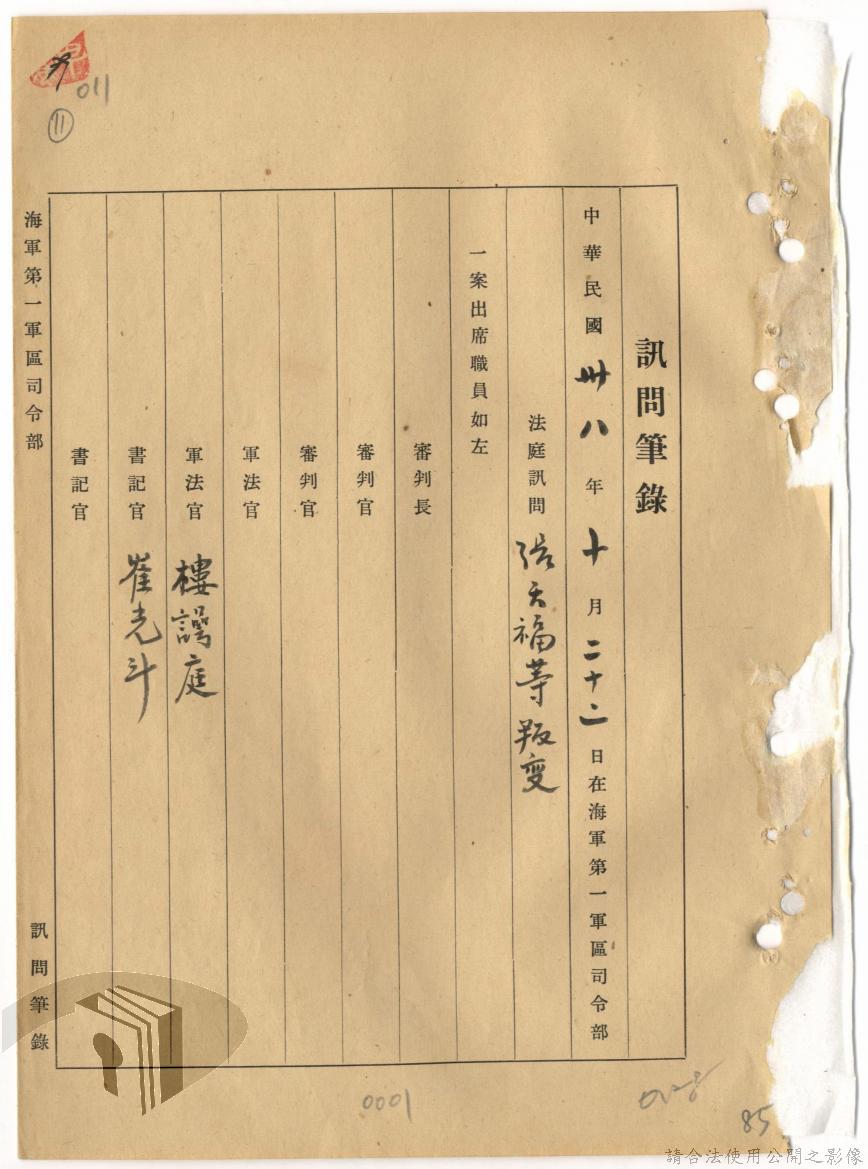 011
11
訊問筆錄
中華民國卅八年十月二十二日在海軍第一軍區司令部
法庭訊問張天福等叛变
一案出席職員如左
審判長
審判官
審判官
軍法官
軍法官 樓諤庭
書記官 崔光斗
書記官
海軍第一軍區司令部 訊問筆錄
0001
85
請合法使用公開之影像